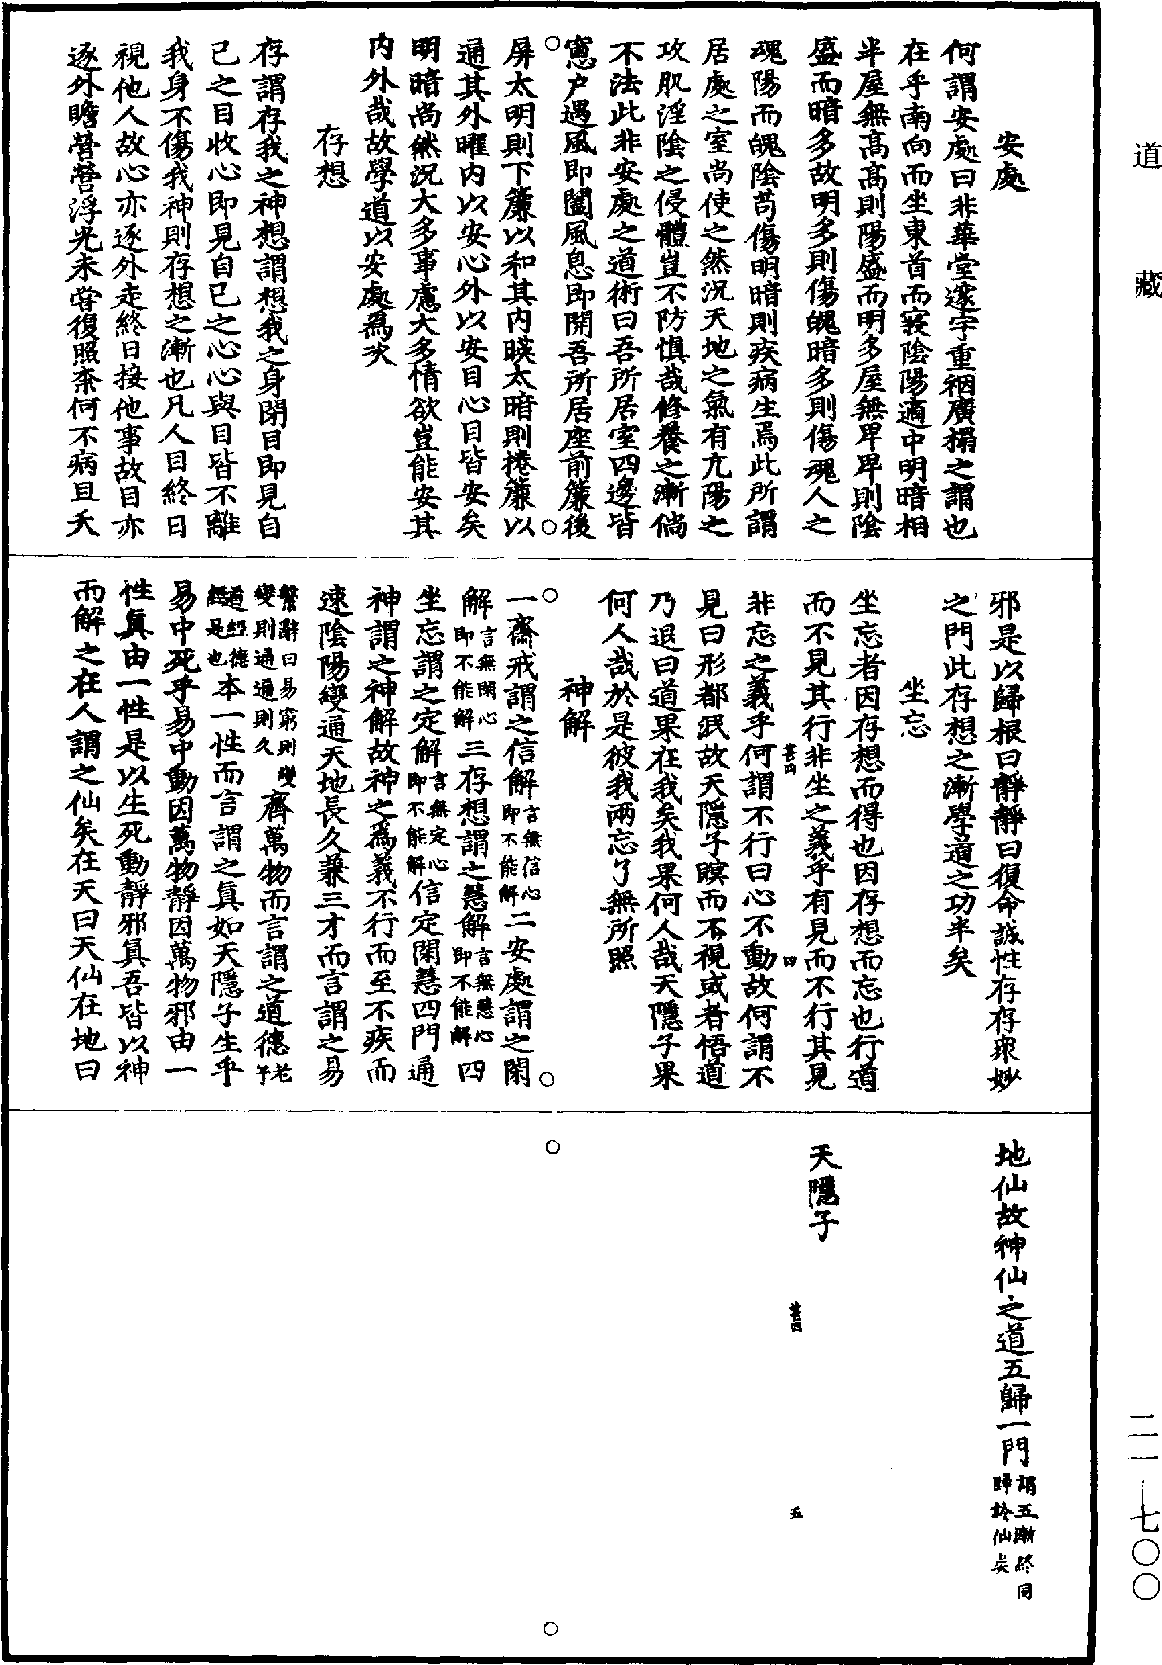 道　藏
二一—七〇〇
安處
何謂安處曰非華堂邃宇重裀廣榻之謂也
在乎南向而坐東首而寢陰陽適中明暗相
半屋無高高則陽盛而明多屋無卑卑則陰
盛而暗多故明多則傷魄暗多則傷魂人之
魂陽而魄陰苟傷明暗則疾病生焉此所謂
居處之室尚使之然況天地之氣有亢陽之
攻肌淫陰之侵體豈不防慎哉修養之漸倘
不法此非安處之道術曰吾所居室四邊皆
窻户遇風即闔風息即開吾所居座前簾後
屏太明則下簾以和其内暎太暗則捲簾以
通其外曜内以安心外以安目心目皆安矣
明暗尚然況大多事慮大多情欲豈能安其
内外哉故學道以安處爲次
存想
存謂存我之神想謂想我之身閉目即見自
己之目收心即見自己之心心與目皆不離
我身不傷我神則存想之漸也凡人目終日
視他人故心亦逐外走終日接他事故目亦
逐外瞻營營浮光未嘗復照柰何不病且夭
邪是以歸根曰靜靜曰復命誠性存存衆妙
之門此存想之漸學道之功半矣
坐忘
坐忘者因存想而得也因存想而忘也行道
而不見其行非坐之義乎有見而不行其見
甚四　四
非忘之義乎何謂不行曰心不動故何謂不
見曰形都泯故天隱子瞑而不視或者悟道
乃退曰道果在我矣我果何人哉天隱子果
何人哉於是彼我兩忘了無所照
神解
一齋戒謂之信解言無信心即不能解二安處謂之閑
解言無閑心即不能解三存想謂之慧解言無慧心即不能解四
坐忘謂之定解言無定心即不能解信定閑慧四門通
神謂之神解故神之爲義不行而至不疾而
速陰陽變通天地長久兼三才而言謂之易
繫辭曰易窮則變變則通通則久齊萬物而言謂之道德老子
道經德經是也本一性而言謂之真如天隱子生乎
易中死乎易中動因萬物靜因萬物邪由一
性真由一性是以生死動靜邪真吾皆以神
而解之在人謂之仙矣在天曰天仙在地曰
地仙故神仙之道五歸一門謂五漸終同歸於仙矣
甚四　五
天隱子